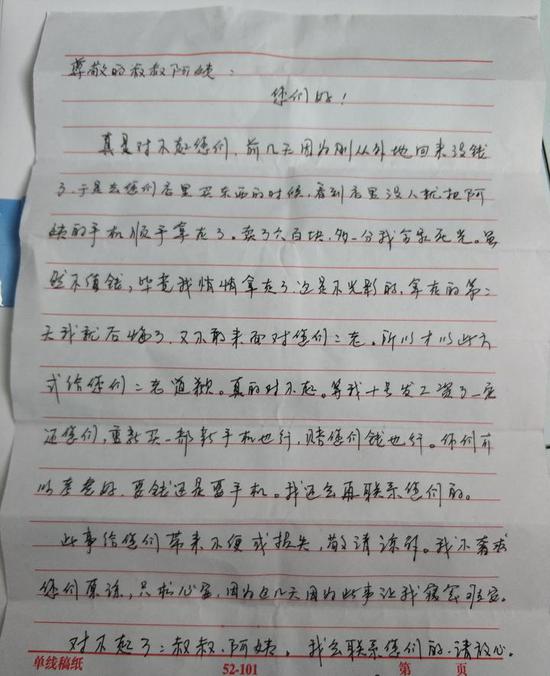 尊敬的叔叔阿姨：
您们好！
真是对不起您们，前几天因为刚从外地回来没钱
了，于是去您们店里买东西的时候，看到店里没人就把阿
姨的手机顺手拿走了。卖了六百块，多一分我全家死光。虽
然不值钱，毕竟我悄悄拿走了这是不光彩的，拿走的第二
天我就后悔了，又不敢来面对您们二老。所以才以此方
式给您们二老道歉。真的对不起。等我十号发工资了一定
还您们，重新买一部新手机也行，赔您们钱也行。你们可
以考虑好，要钱还是要手机。我还会再联系您们的。
此事给您们带来不便或损失，敬请谅解。我不奢求
您们原谅，只求心安，因为这几天因为此事让我寝食难安。
对不起了：叔叔、阿姨。我会联系您们的，请放心。
单线稿纸 52-101 第 页